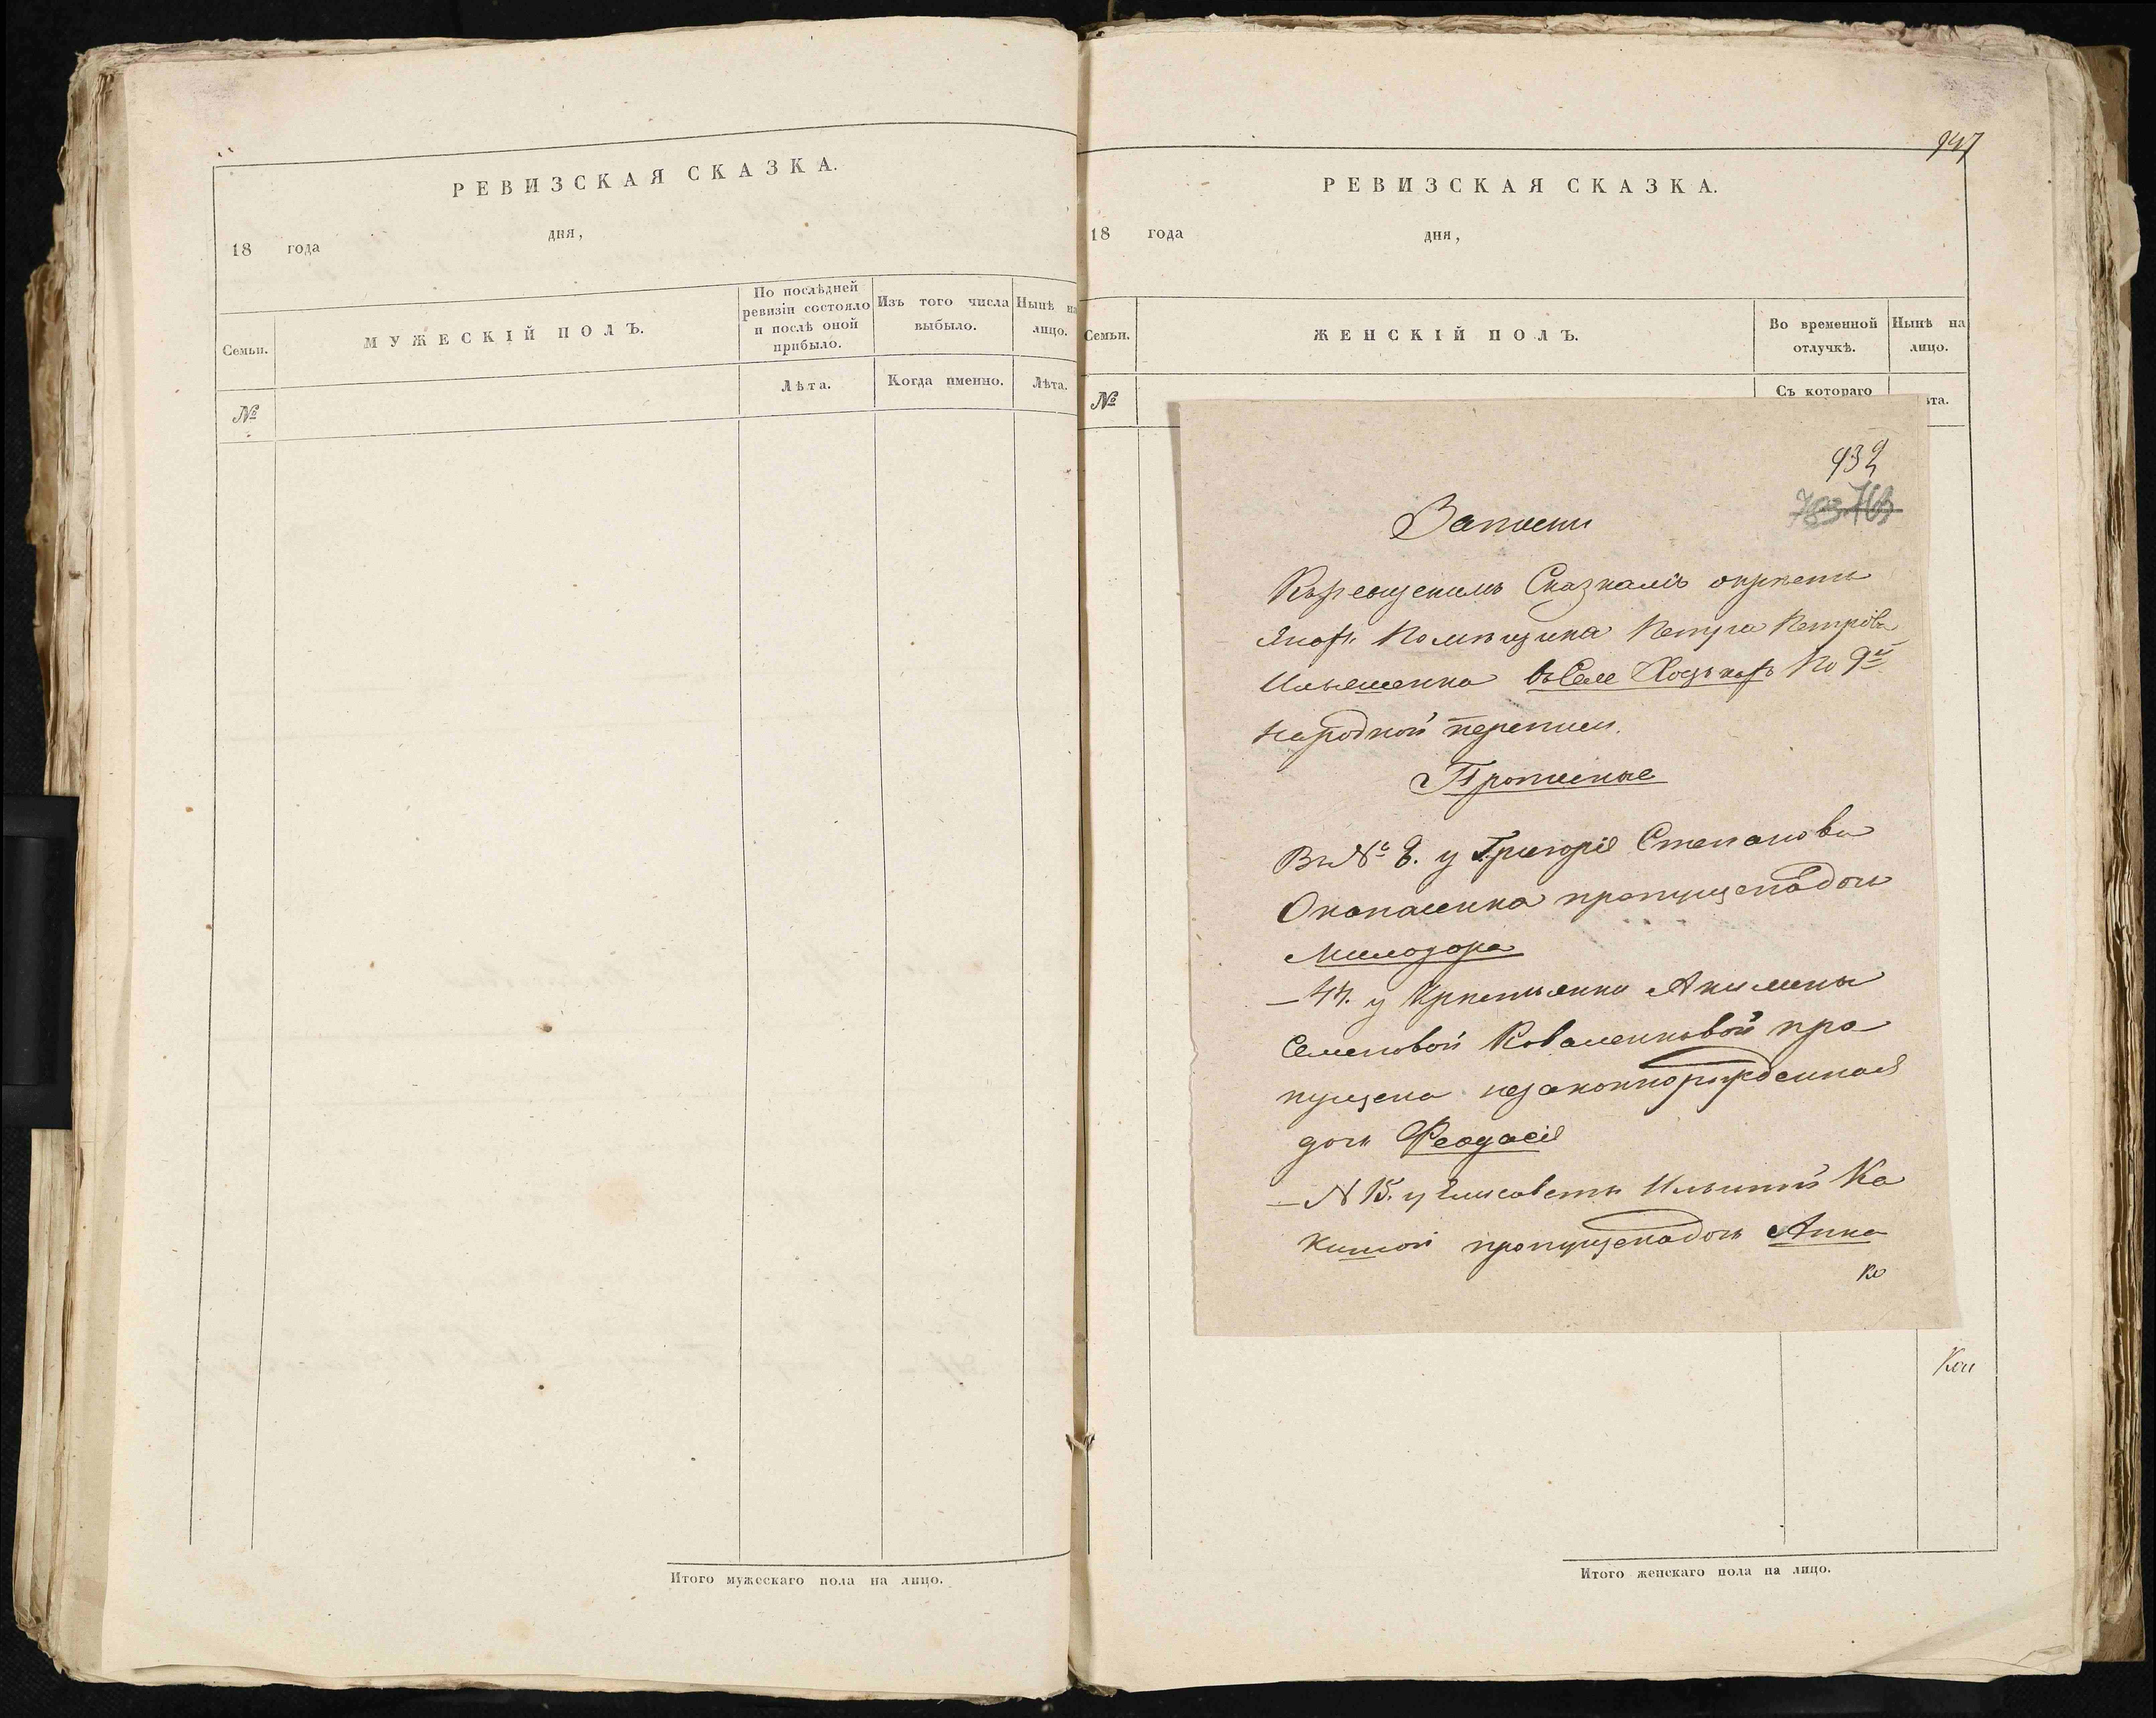 РЕВИЗСКАЯ СКАЗКА.
18 года дня,
Семьи.
МУЖЕСКІЙ ПОЛЪ.
По послѣдней
ревизіи состояло
и послѣ оной
прибыло.
Изъ того числа
выбыло.
Нынѣ на
лицо.
№
Лѣта.
Когда именно.
Лѣта.
Итого мужескаго пола на лицо.
947
РЕВИЗСКАЯ СКАЗКА.
18 года дня,
Семьи.
ЖЕНСКІЙ ПОЛЪ.
Во временной
отлучкѣ.
Нынѣ на
лицо.
№
Съ котораго
ѣта.
932
783 763
Записки
Сказкамъ
Помѣщика Петра Петрова
Ильяшенка въ Селе По 9й
народной переписи.
Прописные
Въ № 8. у Григорія Степанова
пропущена дочь
Милодора
– 44. у Крестьянки Акилины
Семеновой Коваленковой про
пущена незаконнорожденная
дочь Феодосія
– N 15. у Елисаветы Ильиной Ка
пропущена дочь Анна
Ко
Итого женскаго пола на лицо.